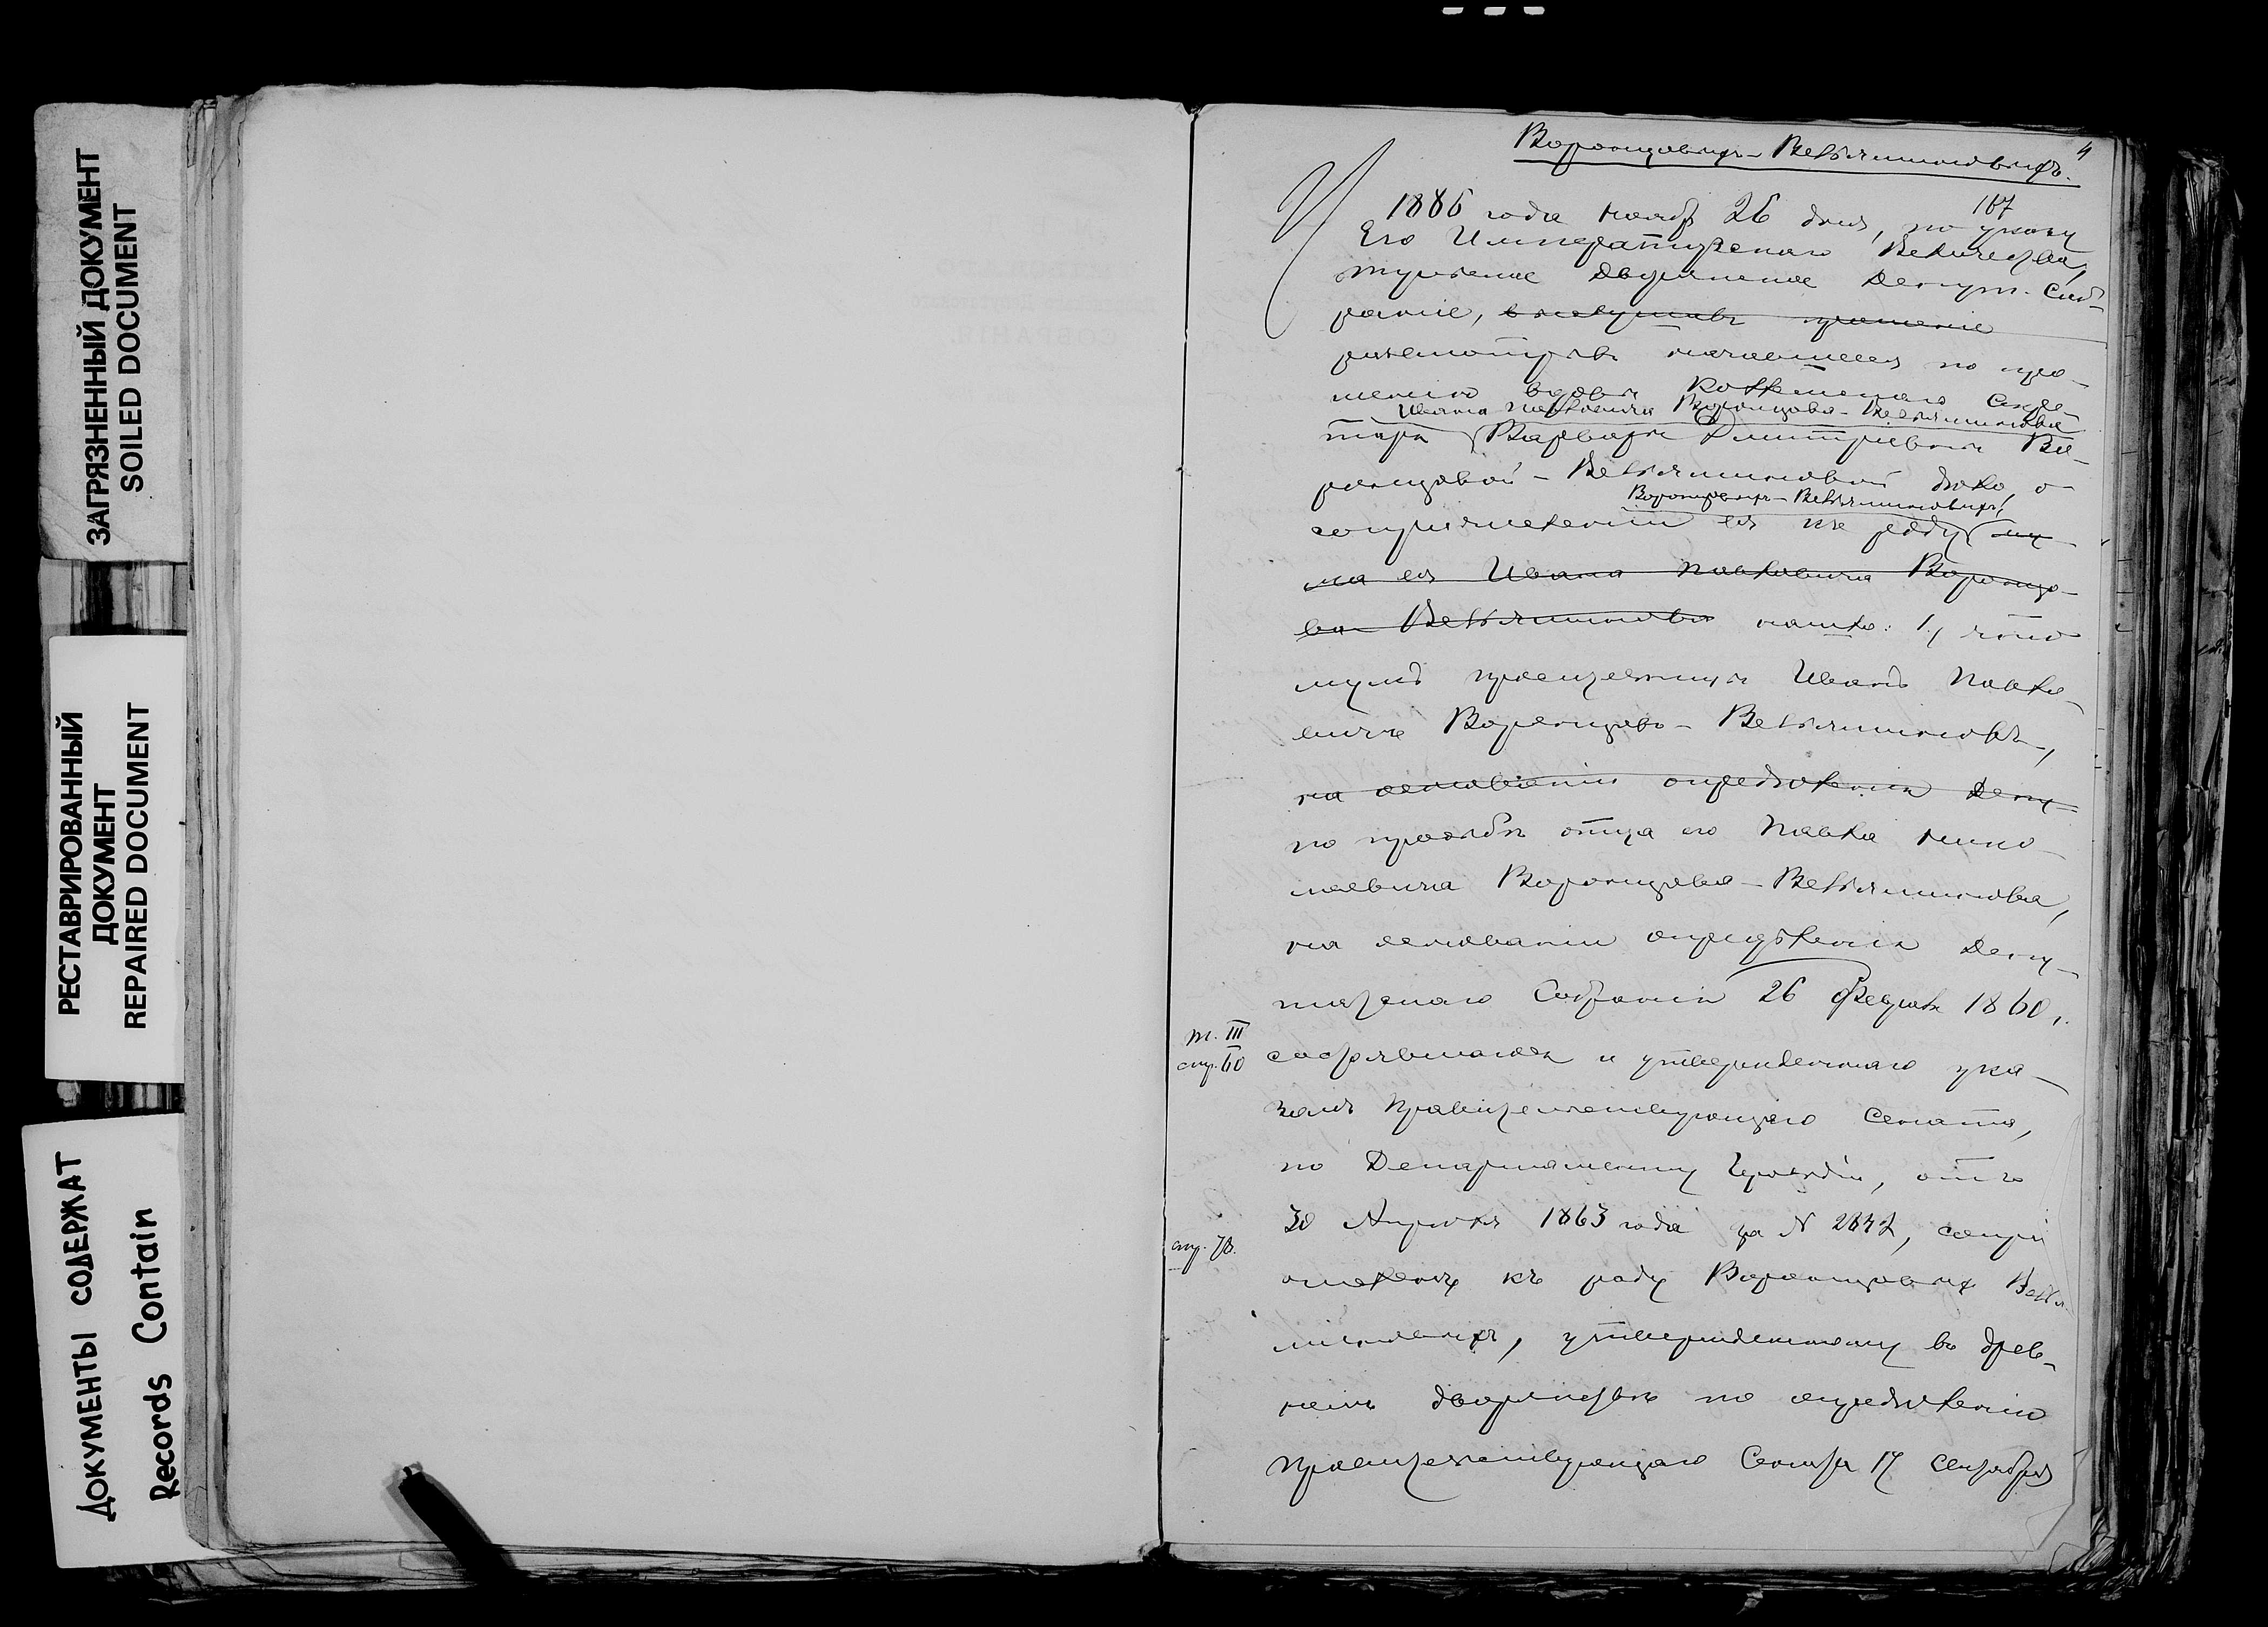 ЗАГРЯЗНЕННЫЙ ДОКУМЕНТ
SOILED DOCUMENT
РЕСТАВРИРОВАННЫЙ
ДОКУМЕНТ
REPAIRED DOCUMENT
ДОКУМЕНТЫ СОДЕРЖАТ
Records Contain
Воронцовыхъ-Вельяминовыхъ.
4
167
1886 года 26 дня, по указу
Его Императорскаго Величества,
Тульское Дворянское Депут. Соб-
раніе, прошеніе
разсмотревъ начавшееся по про-
шенію вдовы Коллежскаго Секре-
Ивана Павловича Воронцова-Вельяминова
таря Варвары Дмитріевны Во-
ронцовой-Вельяминовой дело, о
Воронцовыхъ-Вельяминовыхъ,
сопричисленіи ея къ роду му-
жа ея Ивана Павловича Воронцо-
ва Вельяминова нашло: 1, что
мужъ просительницы Иванъ Павло-
вичъ Воронцовъ-Вельяминовъ,
на основаніи определенія Депу
по просьбе отца его Павла Нико-
лаевича Воронцова-Вельяминова,
на основаніи определенія Депу-
татскаго Собранія 26 1860 г.
т. III
стр. 60
состоявшагося и утвержденнаго ука-
зомъ Правительствующаго Сената,
по Департаменту Герольдіи, отъ
30 Апреля 1863 года за N 2842, сопри
стр. 78.
численъ къ роду Воронцовыхъ Велья
миновыхъ, утвержденному въ древ-
немъ дворянстве по определенію
Правительствующаго Сената 17 Сентября